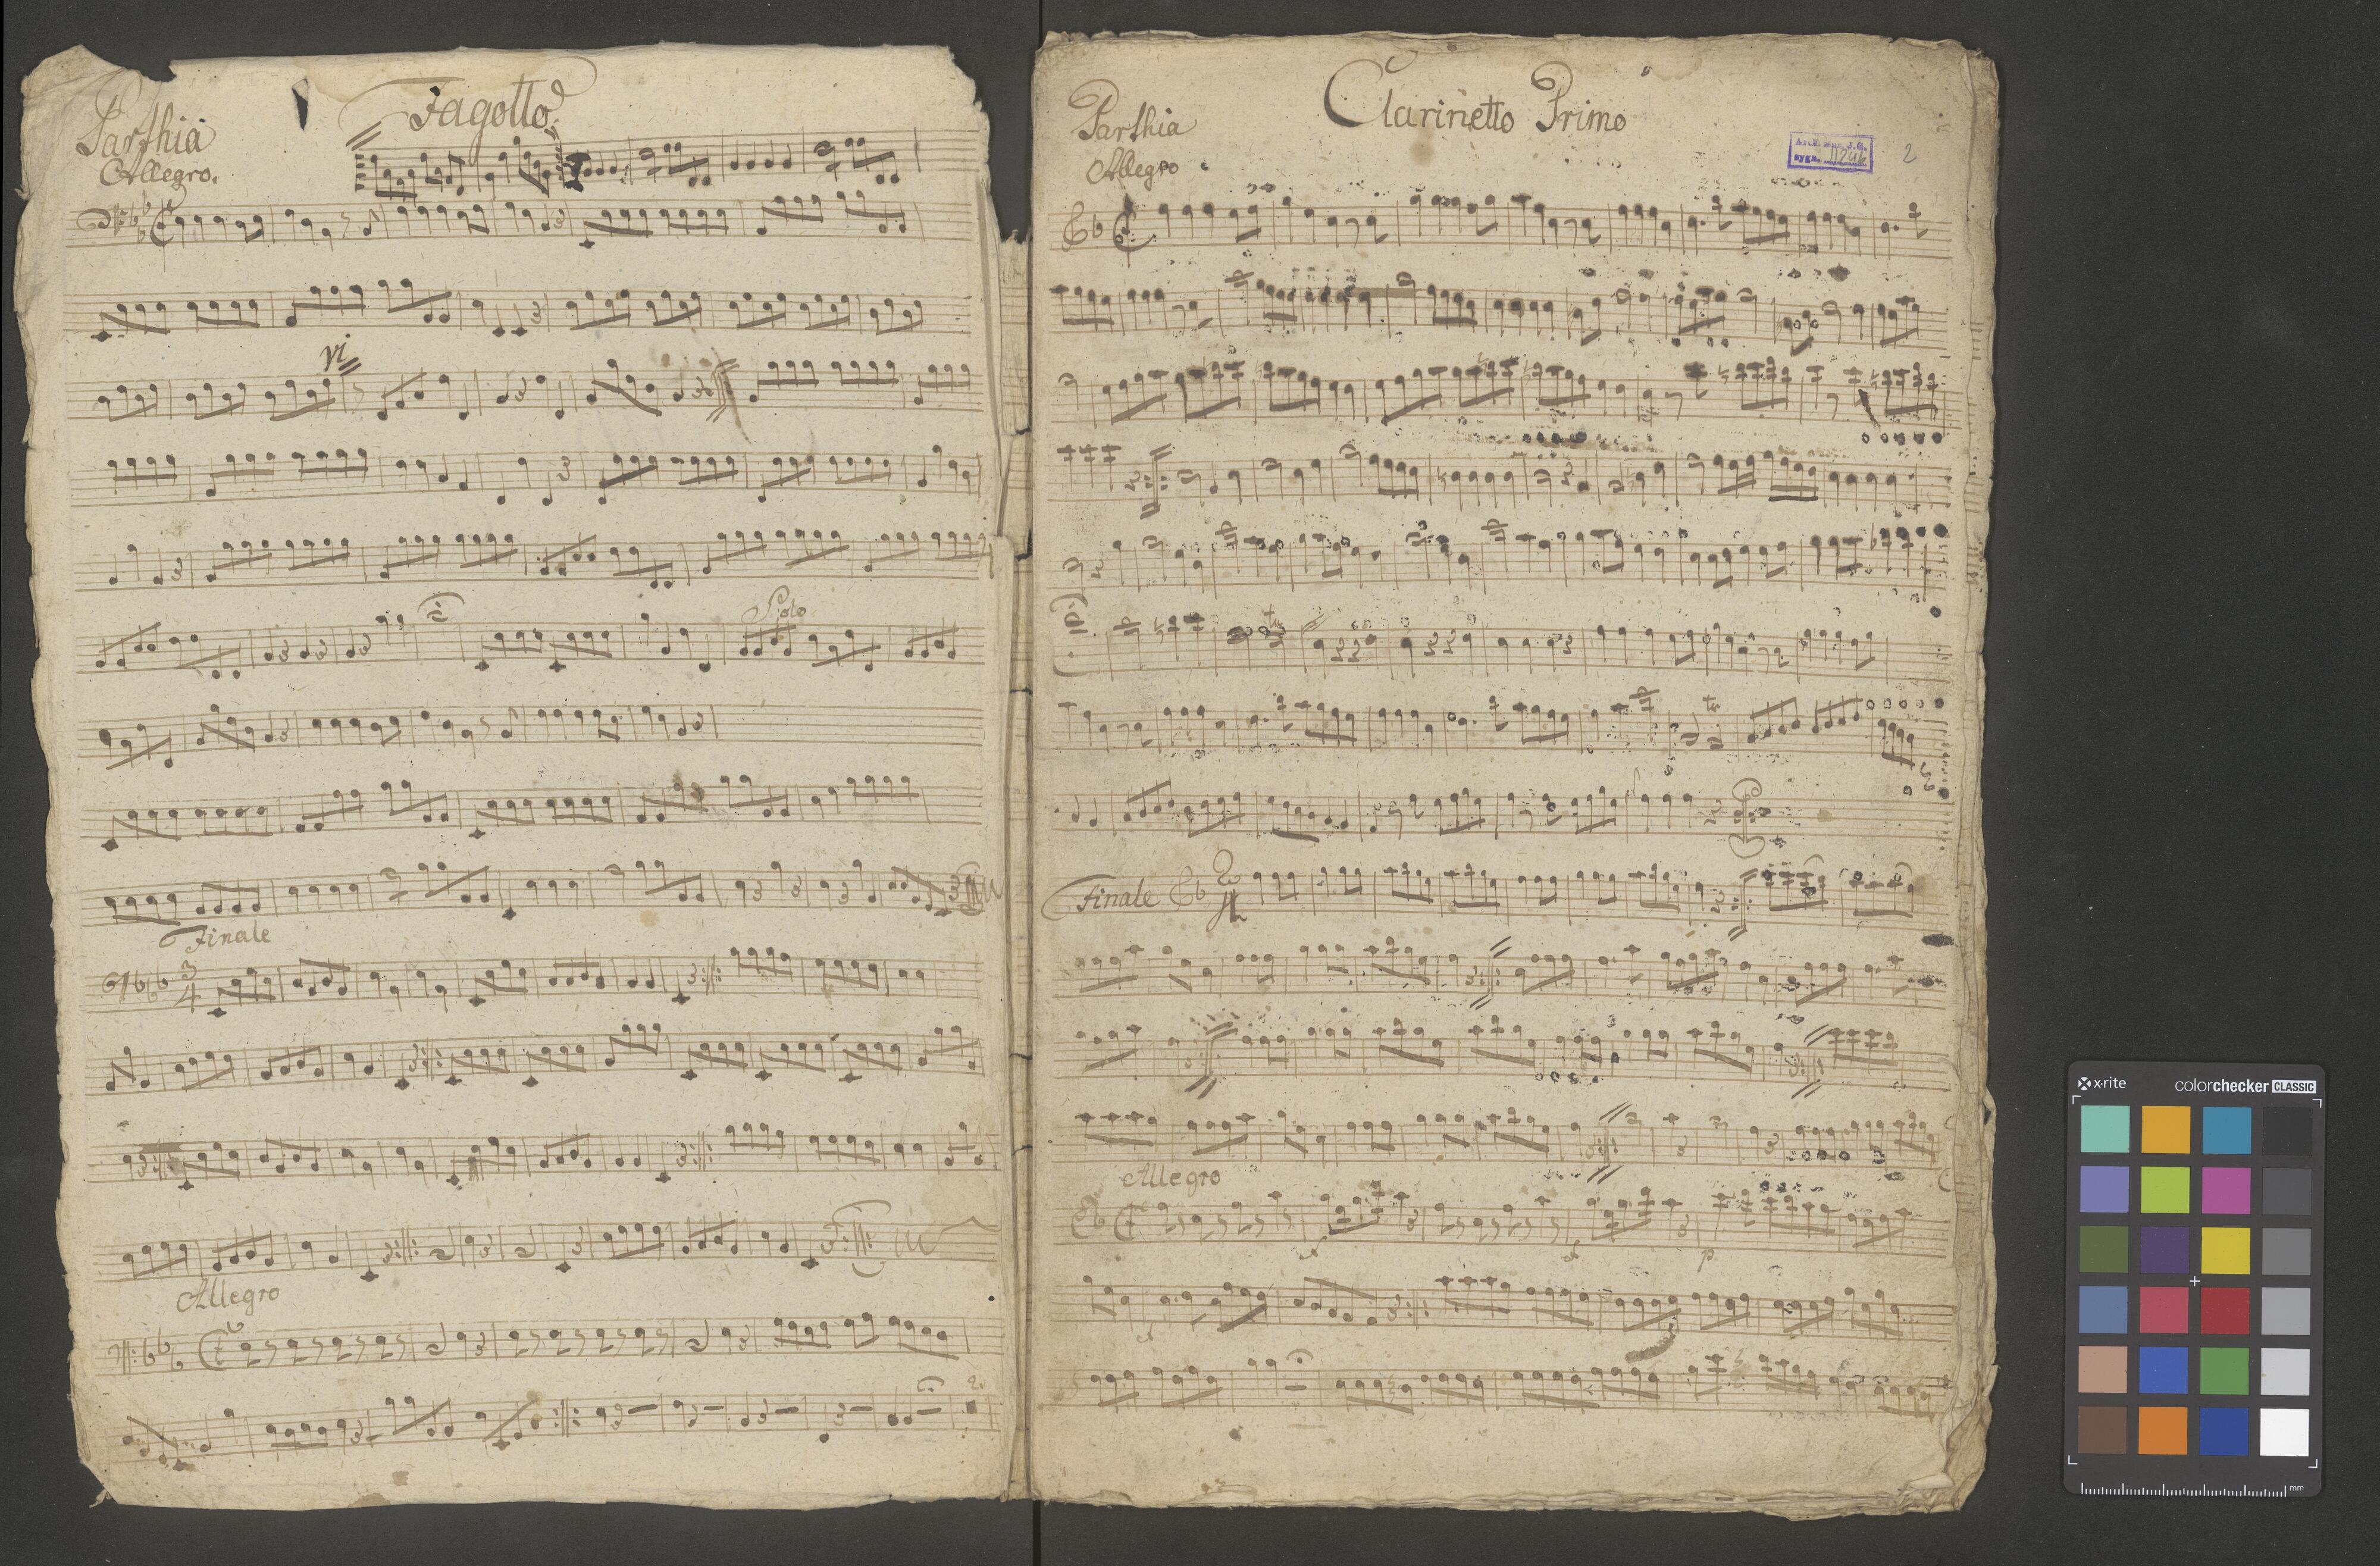 Fagotto
Parthia
Allegro.
Vi
Solo
Finale
3
4
Allegro
2.
Clarinetto Primo
Parthia
Allegro
2
Finale
Allegro
p.
x-rite
colorchecker CLASSIC
mm